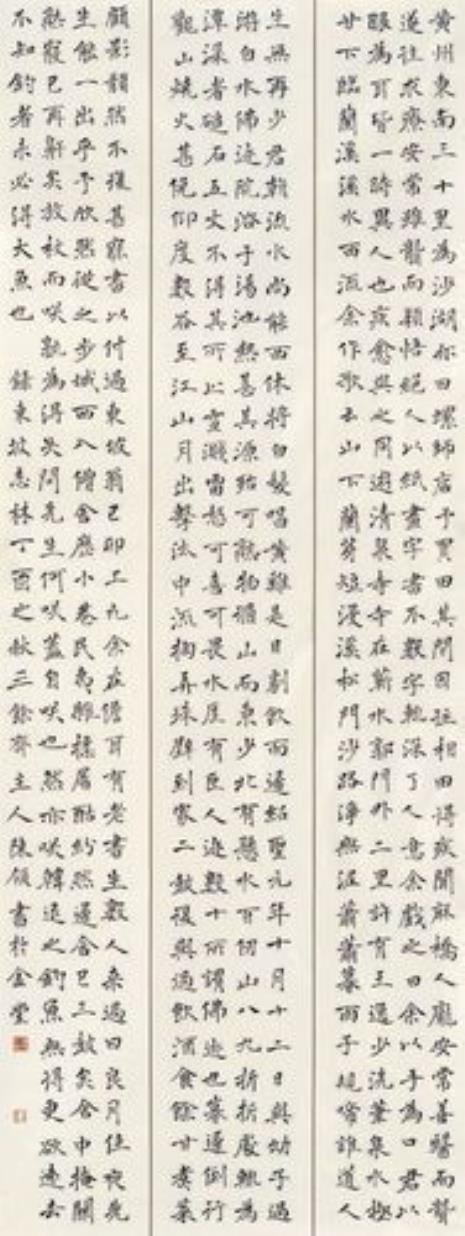 黄州東南三十里為沙湖亦曰螺師店予買田其間因往相田得疾聞麻橋人龐安常善醫而聾
遂往求療安常雖聾而穎悟絕人以紙畫字書不數字輒深了人意余戲之曰余以手為口君以
眼為耳皆一時異人也疾愈與之同遊清泉寺寺在蘄水郭門外二里許有王逸少洗筆泉水極
甘下臨蘭溪溪水西流余作歌云山下蘭芽短浸溪松門沙路淨無泥蕭蕭暮雨子規啼誰道人
生無再少君流水尚能西休將白髮唱黃雞是日劇飲而歸紹聖元年十月十二日與幼子過
游白水佛迹院浴于湯池熱甚其源殆可熟物循山而東少北有懸水百仞山八九折折處輒為
潭深者磓石五丈不得其所止雪濺雷怒可喜可畏水崖有巨人迹數十所謂佛迹也暮歸倒行
觀山燒火甚俛仰度數谷至江山月出擊汰中流掬弄珠璧到家二鼓復與過飲酒食餘甘煮菜
顧影頹然不復甚寐書以付過東坡翁己卯上元余在儋耳有老書生數人來過曰良月佳夜先
生能一出乎予欣然從之步城西入僧舍歷小巷民夷雜揉屠酤紛然歸舍已三鼓矣舍中掩關
熟寢已再鼾矣放杖而咲孰為得失問先生何咲蓋自咲也然亦咲韓退之釣魚無得更欲遠去
不知釣者未必得大魚也 錄東坡志林丁酉之秋三餘齋主人陳書於金堂